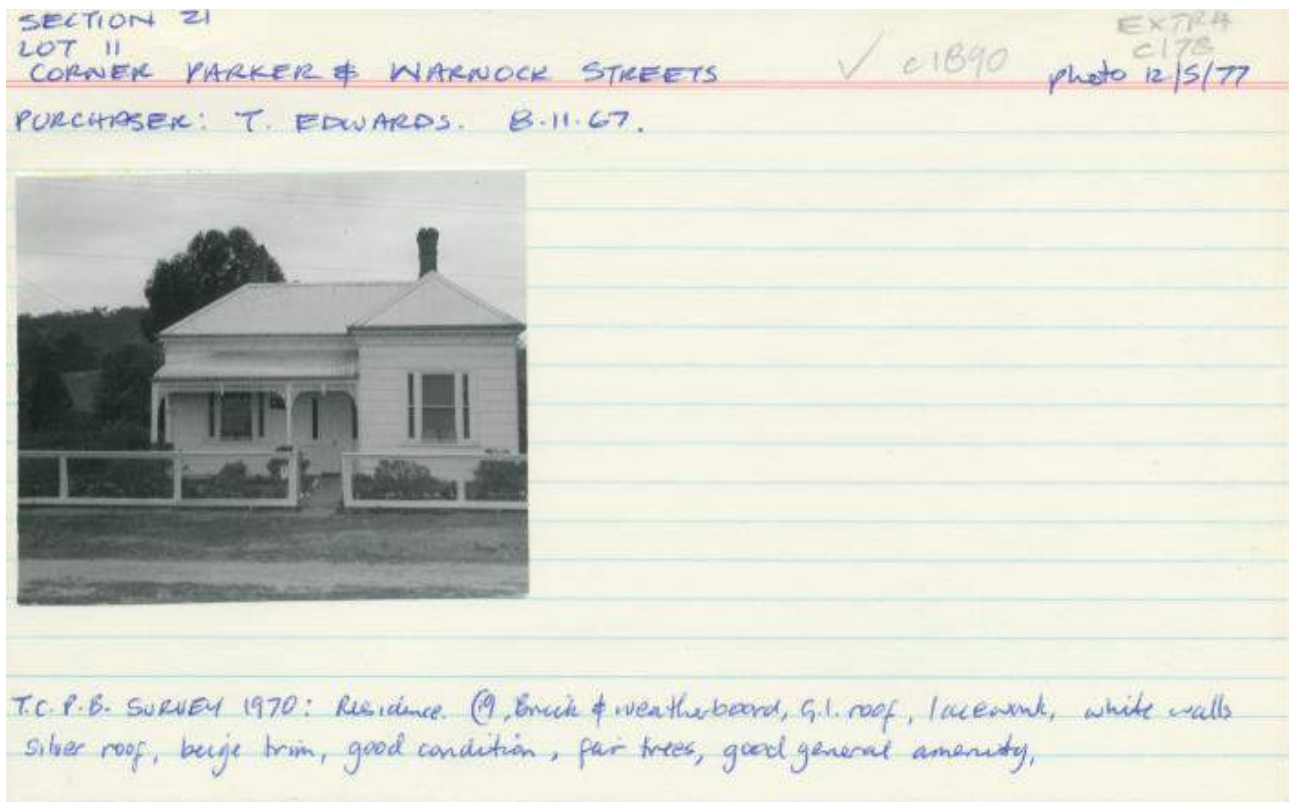 SECTION 21
LOT 11
CORNER PARKER & WARNOCK STREETS
✓ c1890
EXTRA
C178
photo 12/5/77
PURCHASER: T. EDWARDS. 8.11.67.
T.C.P.B. SURVEY 1970: Residence. Brick & weatherboard, G.I. roof, lacework, white walls
Silver roof, beige trim, good condition, fair trees, good general amenity,